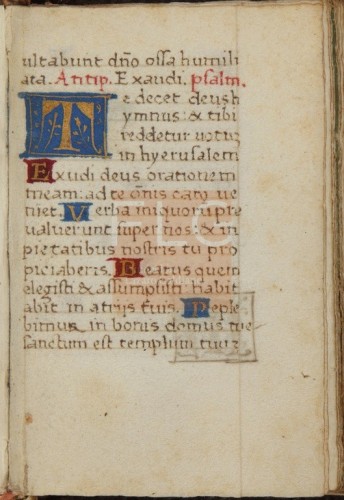 ultabunt dño ossa humili
ata. Antip. Exaudi. psalm.
Te decet deus h
ymnus: & tibi
reddetur votuȝ
in hyerusalem
Exudi deus orationem
meam: ad te oñis caro ve
niet. Verba iniquorū pre
valuerunt super nos: & im
pietatibus nostris tu pro
piciaberis. Beatus quem
elegisti & assumpsisti: habit
abit in atrijs tuis. Reple
bimur in bonis domus tue
sanctum est templum tuūȝ